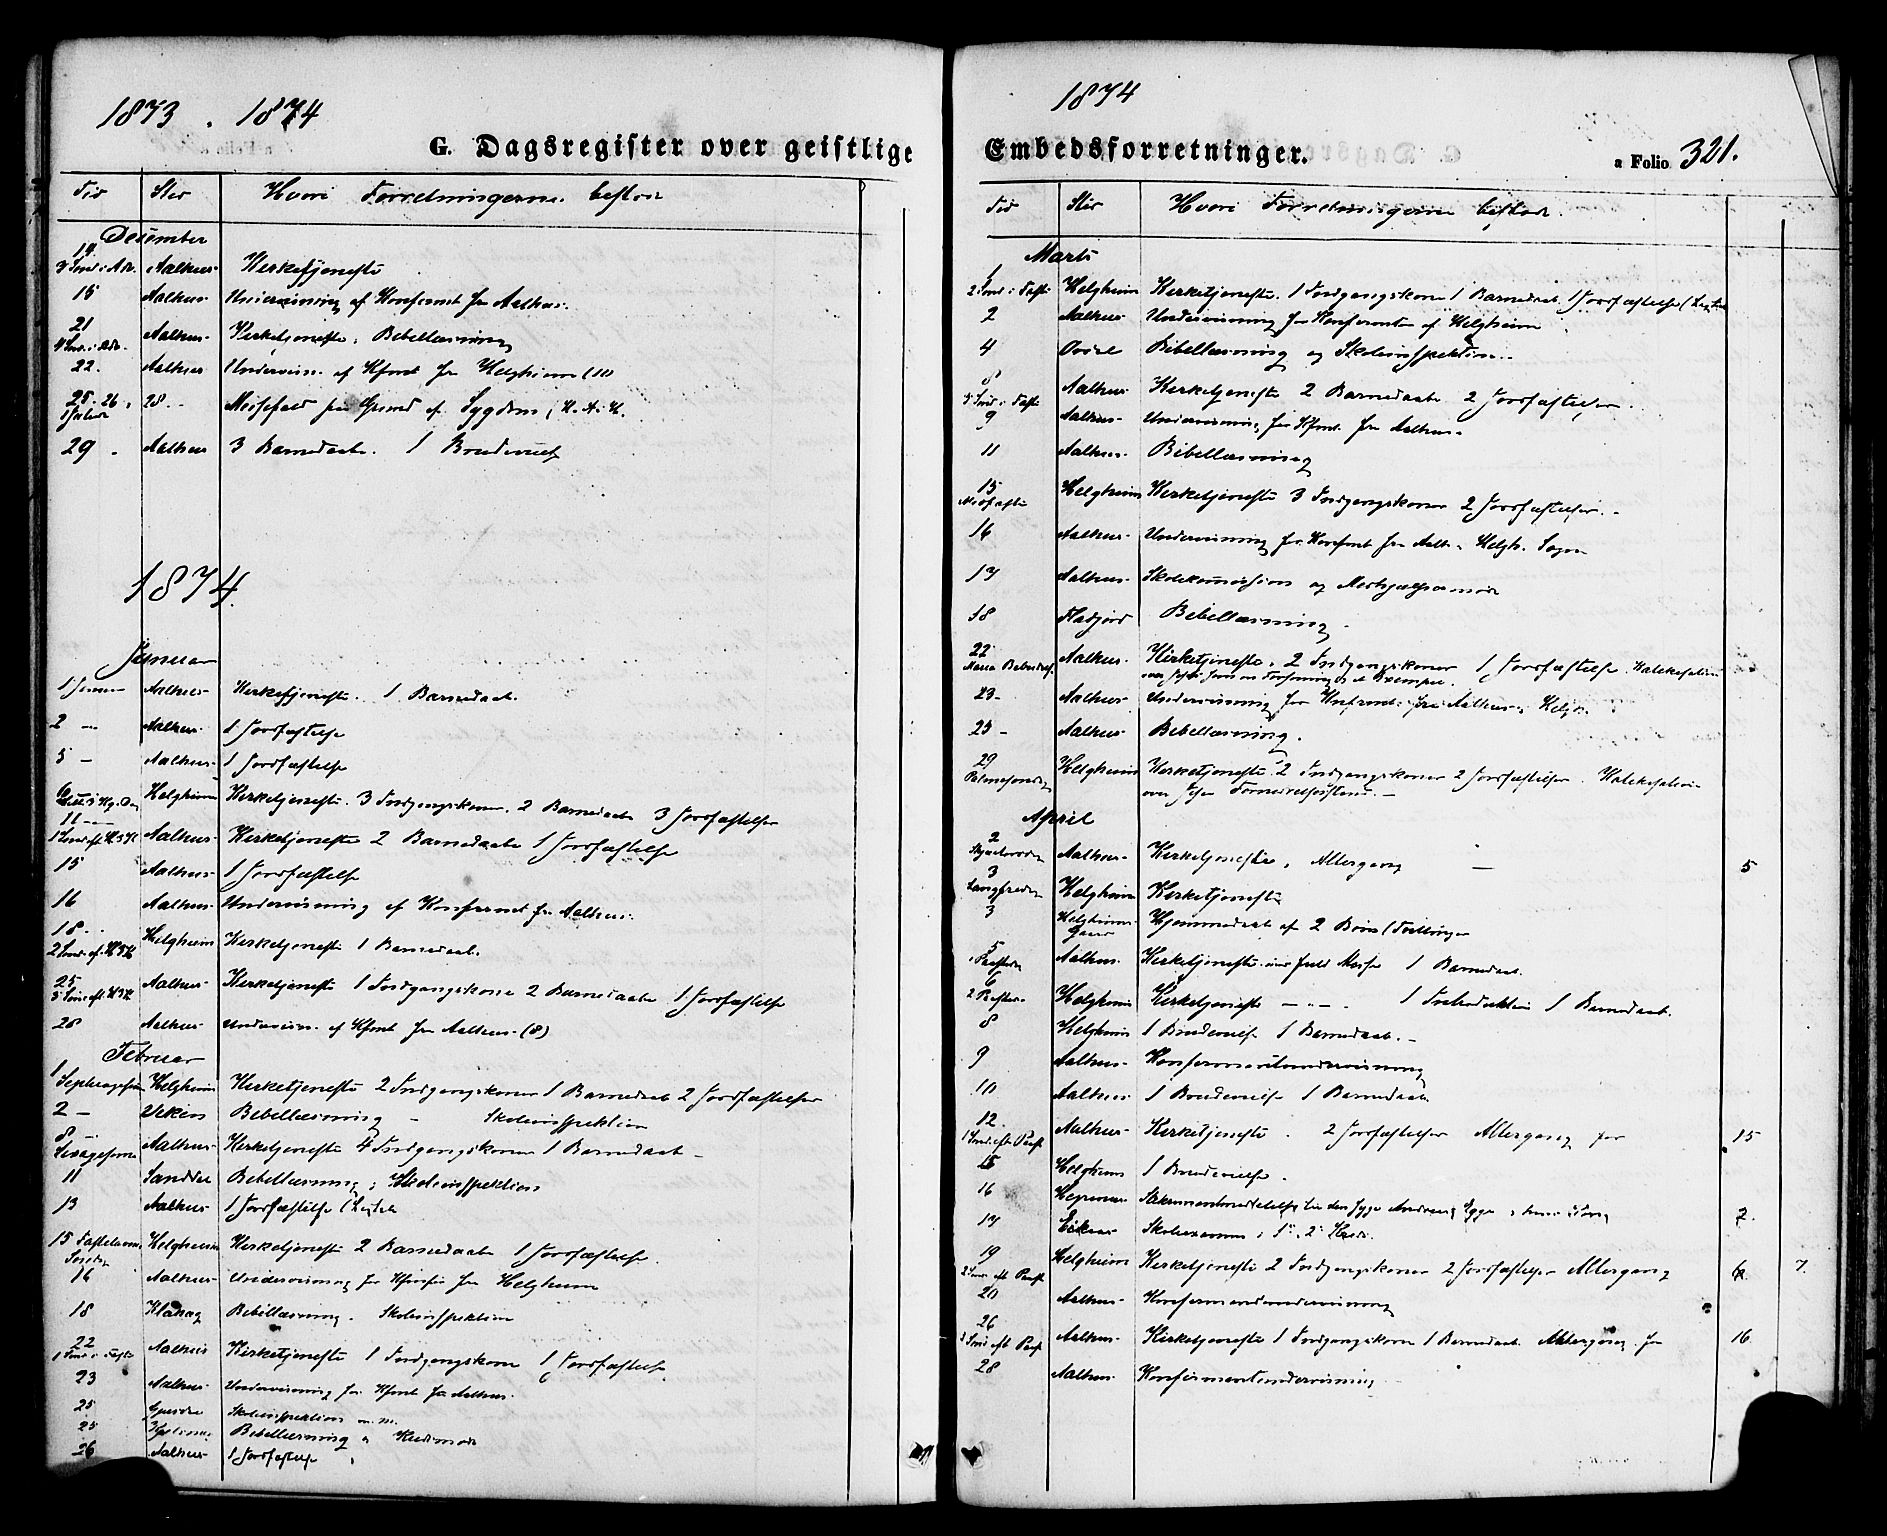 1873 . 1874
G. Dagsregister over geistlige
Tid Sted Hvori Forretningerne bestod
December
14
3 Snd. i Adv. Aalhus Kirketjeneste
15 Aalhus Underviisning af Konfirmt fra Aalhus.
21
4 Snd. i Adv. Aalhus Kirketjeneste, Bibellæsning
22. Aalhus Undervisn. af Kfmt fra Helgheim (10)
25. 26, 28. Messefald paa Grund af Sygdom i
29 . Aalhus 3 Barnedaab. 1 Brudevielse
1874.
Januar
1 Januar Aalhus Kirketjeneste. 1 Barnedaab.
2 — Aalhus. 1 Jordfæstelse
5 — Aalhus 1 Jordfæstelse
6 Helgheim Kirketjeneste. 3 Indgangskoner. 2 Barnedaab 3 Jordfæstelser
11
1 Snd. eft. H3K Aalhus Kirketjeneste 2 Barnedaab 1 Jordfæstelse
15 Aalhus 1 Jordfæstelse
16 Aalhus Underviisning af Konfirmt fra Aalhus.
18.
2 Snd. ef. H3K Helgheim Kirketjeneste 1 Barnedaab.
25
3 Snd. eft. H3K Aalhus Kirketjeneste 1 Indgangskone 2 Barnedaab 1 Jordfæstelse
28 Aalhus Undervisn. af Kfmt fra Aalhus (8)
Februar
1
Septuagesima Helgheim Kirketjeneste 2 Indgangskoner 1 Barnedaab 2 Jordfæstelser
2 — Bibellæsning — Skoleinspektion
8
Sexagesima Aalhus Kirketjeneste 4 Indgangskoner 1 Barnedaab
11 Sanddal Bibellæsning, Skoleinspektion
13 Aalhus 1 Jordfæstelse
15 Fastelavns
Søndag Helgheim Kirketjeneste 2 Barnedaab 1 Jordfæstelse.
16 Aalhus Underviisning for Kfmter fra Helgheim
18 Klakeg Bibellæsning. Skoleinspektion
22
1 Snd i Faste Aalhus Kirketjeneste 1 Indgangskone 1 Jordfæstelse
23 Aalhus Underviisning for Kfmt fra Aalhus.
25 Skoleinspektion m. m.
25 Bibellæsning
26 Aalhus 1 Jordfæstelse
1874
Embedsforretninger.
a Folio 321.
Tid Sted Hvori Forretningerne bestod.
Marts
1
2 Snd. i Faste Helgheim Kirketjeneste. 1 Indgangskone 1 Barnedaab 1 Jordfæstelse
2 Aalhus Underviisning for Konfirmter af Helgheim
4 Bibellæsning og Skoleinspektion
8
3 Snd. i Faste Aalhus Kirketjeneste 2 Barnedaab 2 Jordfæstelser.
9 Aalhus Underviisning for Kfmt. fra Aalhus
11 Aalhus Bibellæsning
15
Midfaste Helgheim Kirketjeneste 3 Indgangskoner 2 Jordfæstelser.
16 Aalhus Underviisning for Konfmt fra Aalh. Helgh. Sogn
17 Aalhus Skolekommission og
18 Fladjord Bibellæsning.
22
Maria Bebud. Aalhus Kirketjeneste. 2 Indgangskoner 1 Jordfæstelse Katekesation
23 Aalhus Underviisning for fra Aalhus, Helgh.
25 — Aalhus Bibellæsning.
29
Palmesøndag Helgheim Kirketjeneste. 2 Indgangskoner 2 Jordfæstelser. Katekesation
April
2
Skjærtorsdag Aalhus Kirketjeneste, Altergang — 5
3
Langfredag Helgheim Kirketjeneste
3 Helgheims
Gaard Hjemmedaab af 2 Børn (Tvillinger
5
1 Paaskedag Aalhus Kirketjeneste med fuld Messe 1 Barnedaab.
6
2 Paaskedag Helgheim Kirketjeneste — „ — 1 Introduktion 1 Barnedaab.
8 Helgheim 1 Brudevielse 1 Barnedaab.
9 Aalhus Konfirmantundervisning
10 Aalhus 1 Brudevielse 1 Barnedaab
12.
1 Snd. eft. Paask Aalhus Kirketjeneste. 2 Jordfæstelser Altergang for 15
15 Helgheim 1 Brudevielse.
16 Sakramentmeddelelse til den syge 2.
17 Eikaas Skoleexamen i 1ste, 2den Kreds.
19
2 Snd. eft Paask Helgheim Kirketjeneste 2 Indgangskoner 2 Jordfæstelser Altergang 6. 7.
20 Aalhus Konfirmandundervisning
26
3 Snd eft Paask Aalhus Kirketjeneste 1 Indgangskone 1 Barnedaab Altergang for 16
28 Aalhus Konfirmantundervisning